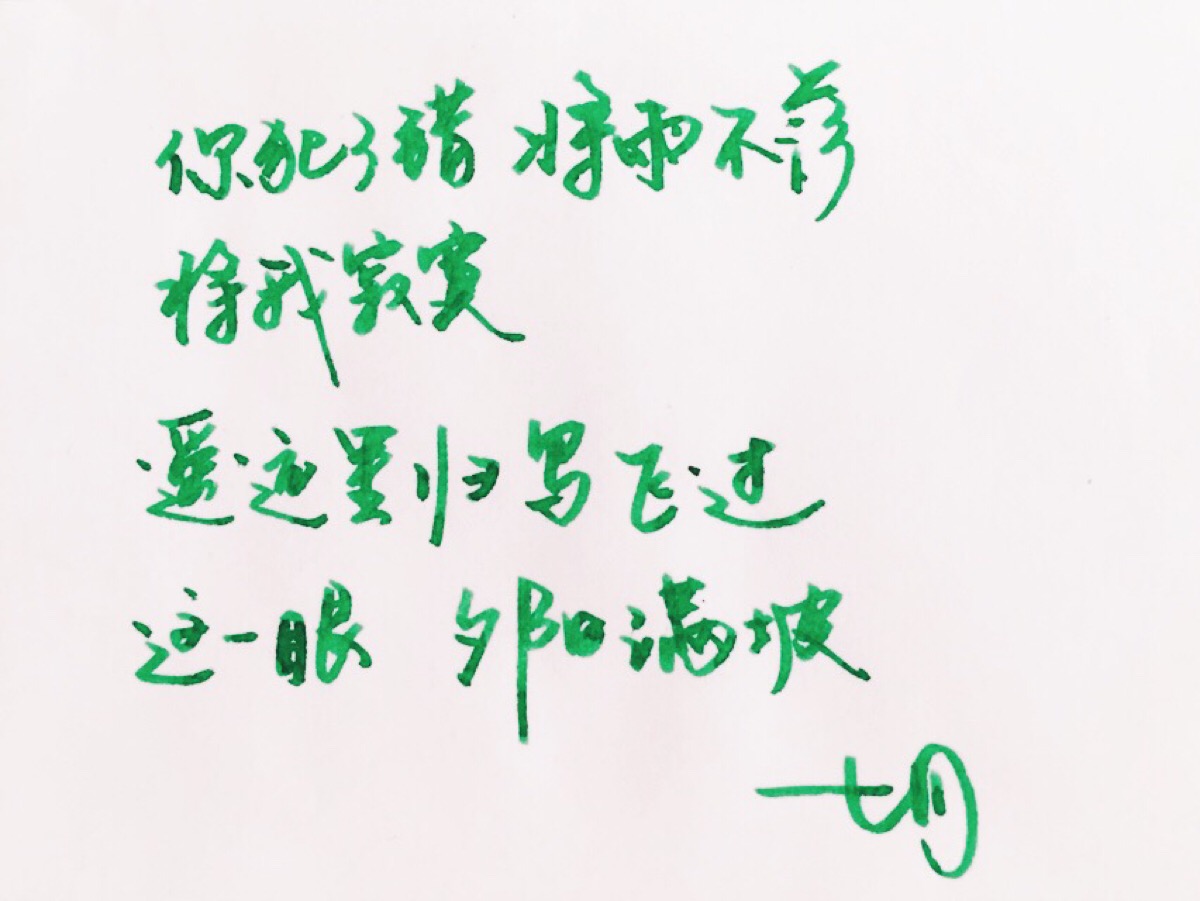 你犯了错 将雨不落
将我寂寞
遥远里归写飞过
这一眼 夕阳满坡
七月